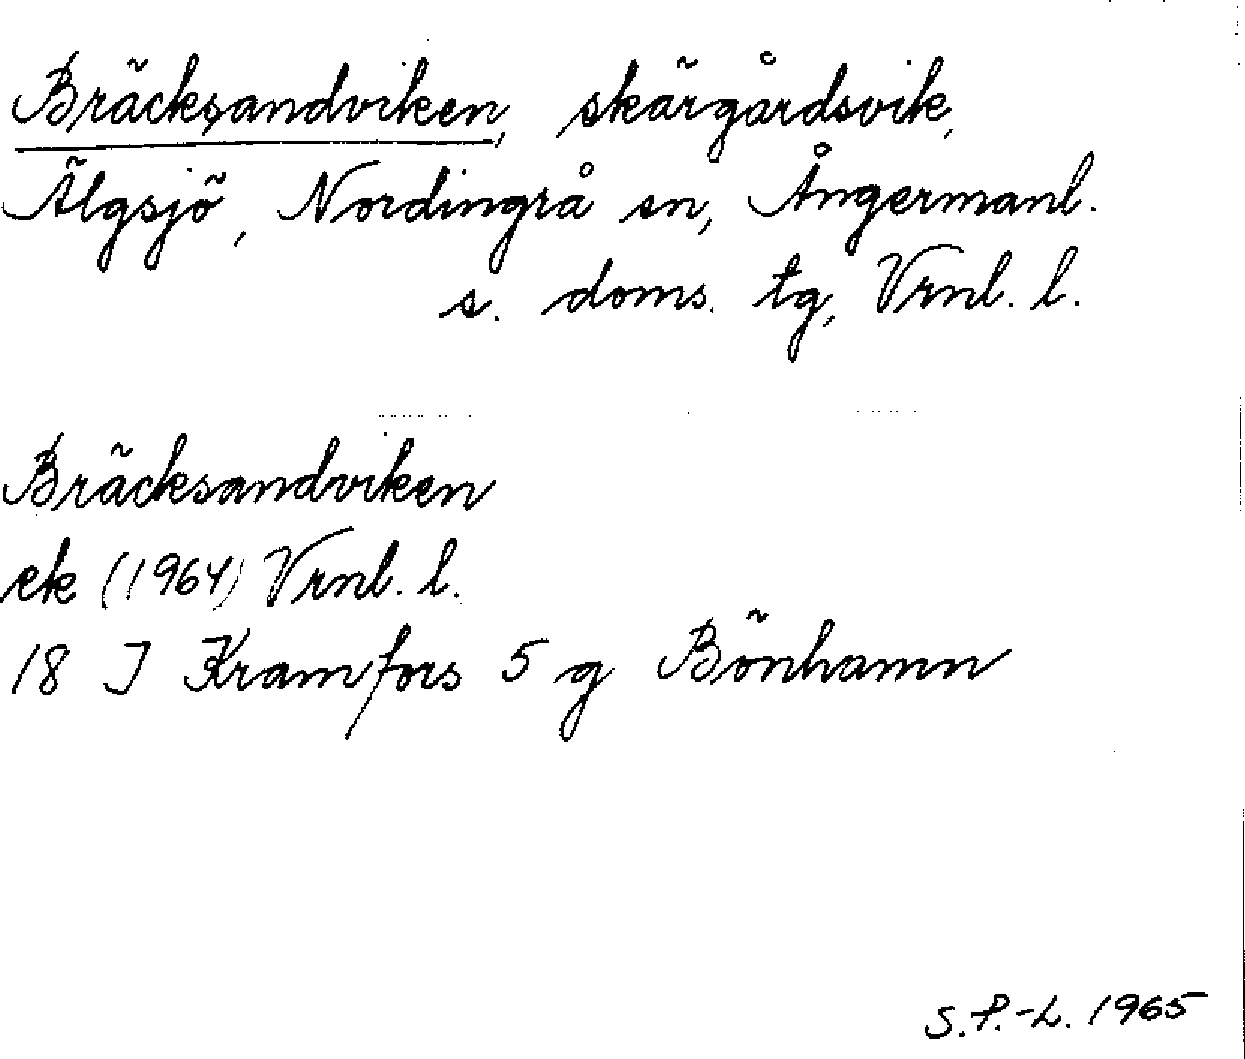 Bräcksandviken, skärgårdsvik,
Älgsjö, Nordingrå sn, Ångermanl.
s. doms. tg, Vrnl. l.
Bräcksandviken
ek (1964) Vrnl. l.
18 J Kramfors 5 g Bönhamn
S.P.-L. 1965